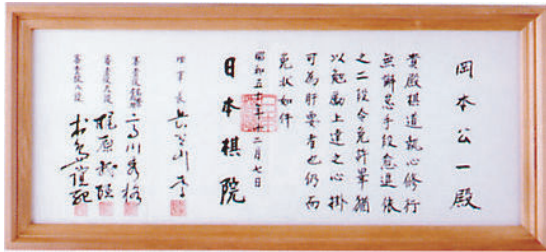 岡本公一殿
貴殿棋道執心修行
無懈怠手段愈進依
之二段令免許畢猶
以勉励上達之心掛
可為肝要者也仍而
免状如件
昭和五十年十二月七日
日本棋院
理事長
審査役
高川秀格
審査役九段
梶原武雄
審査役九段